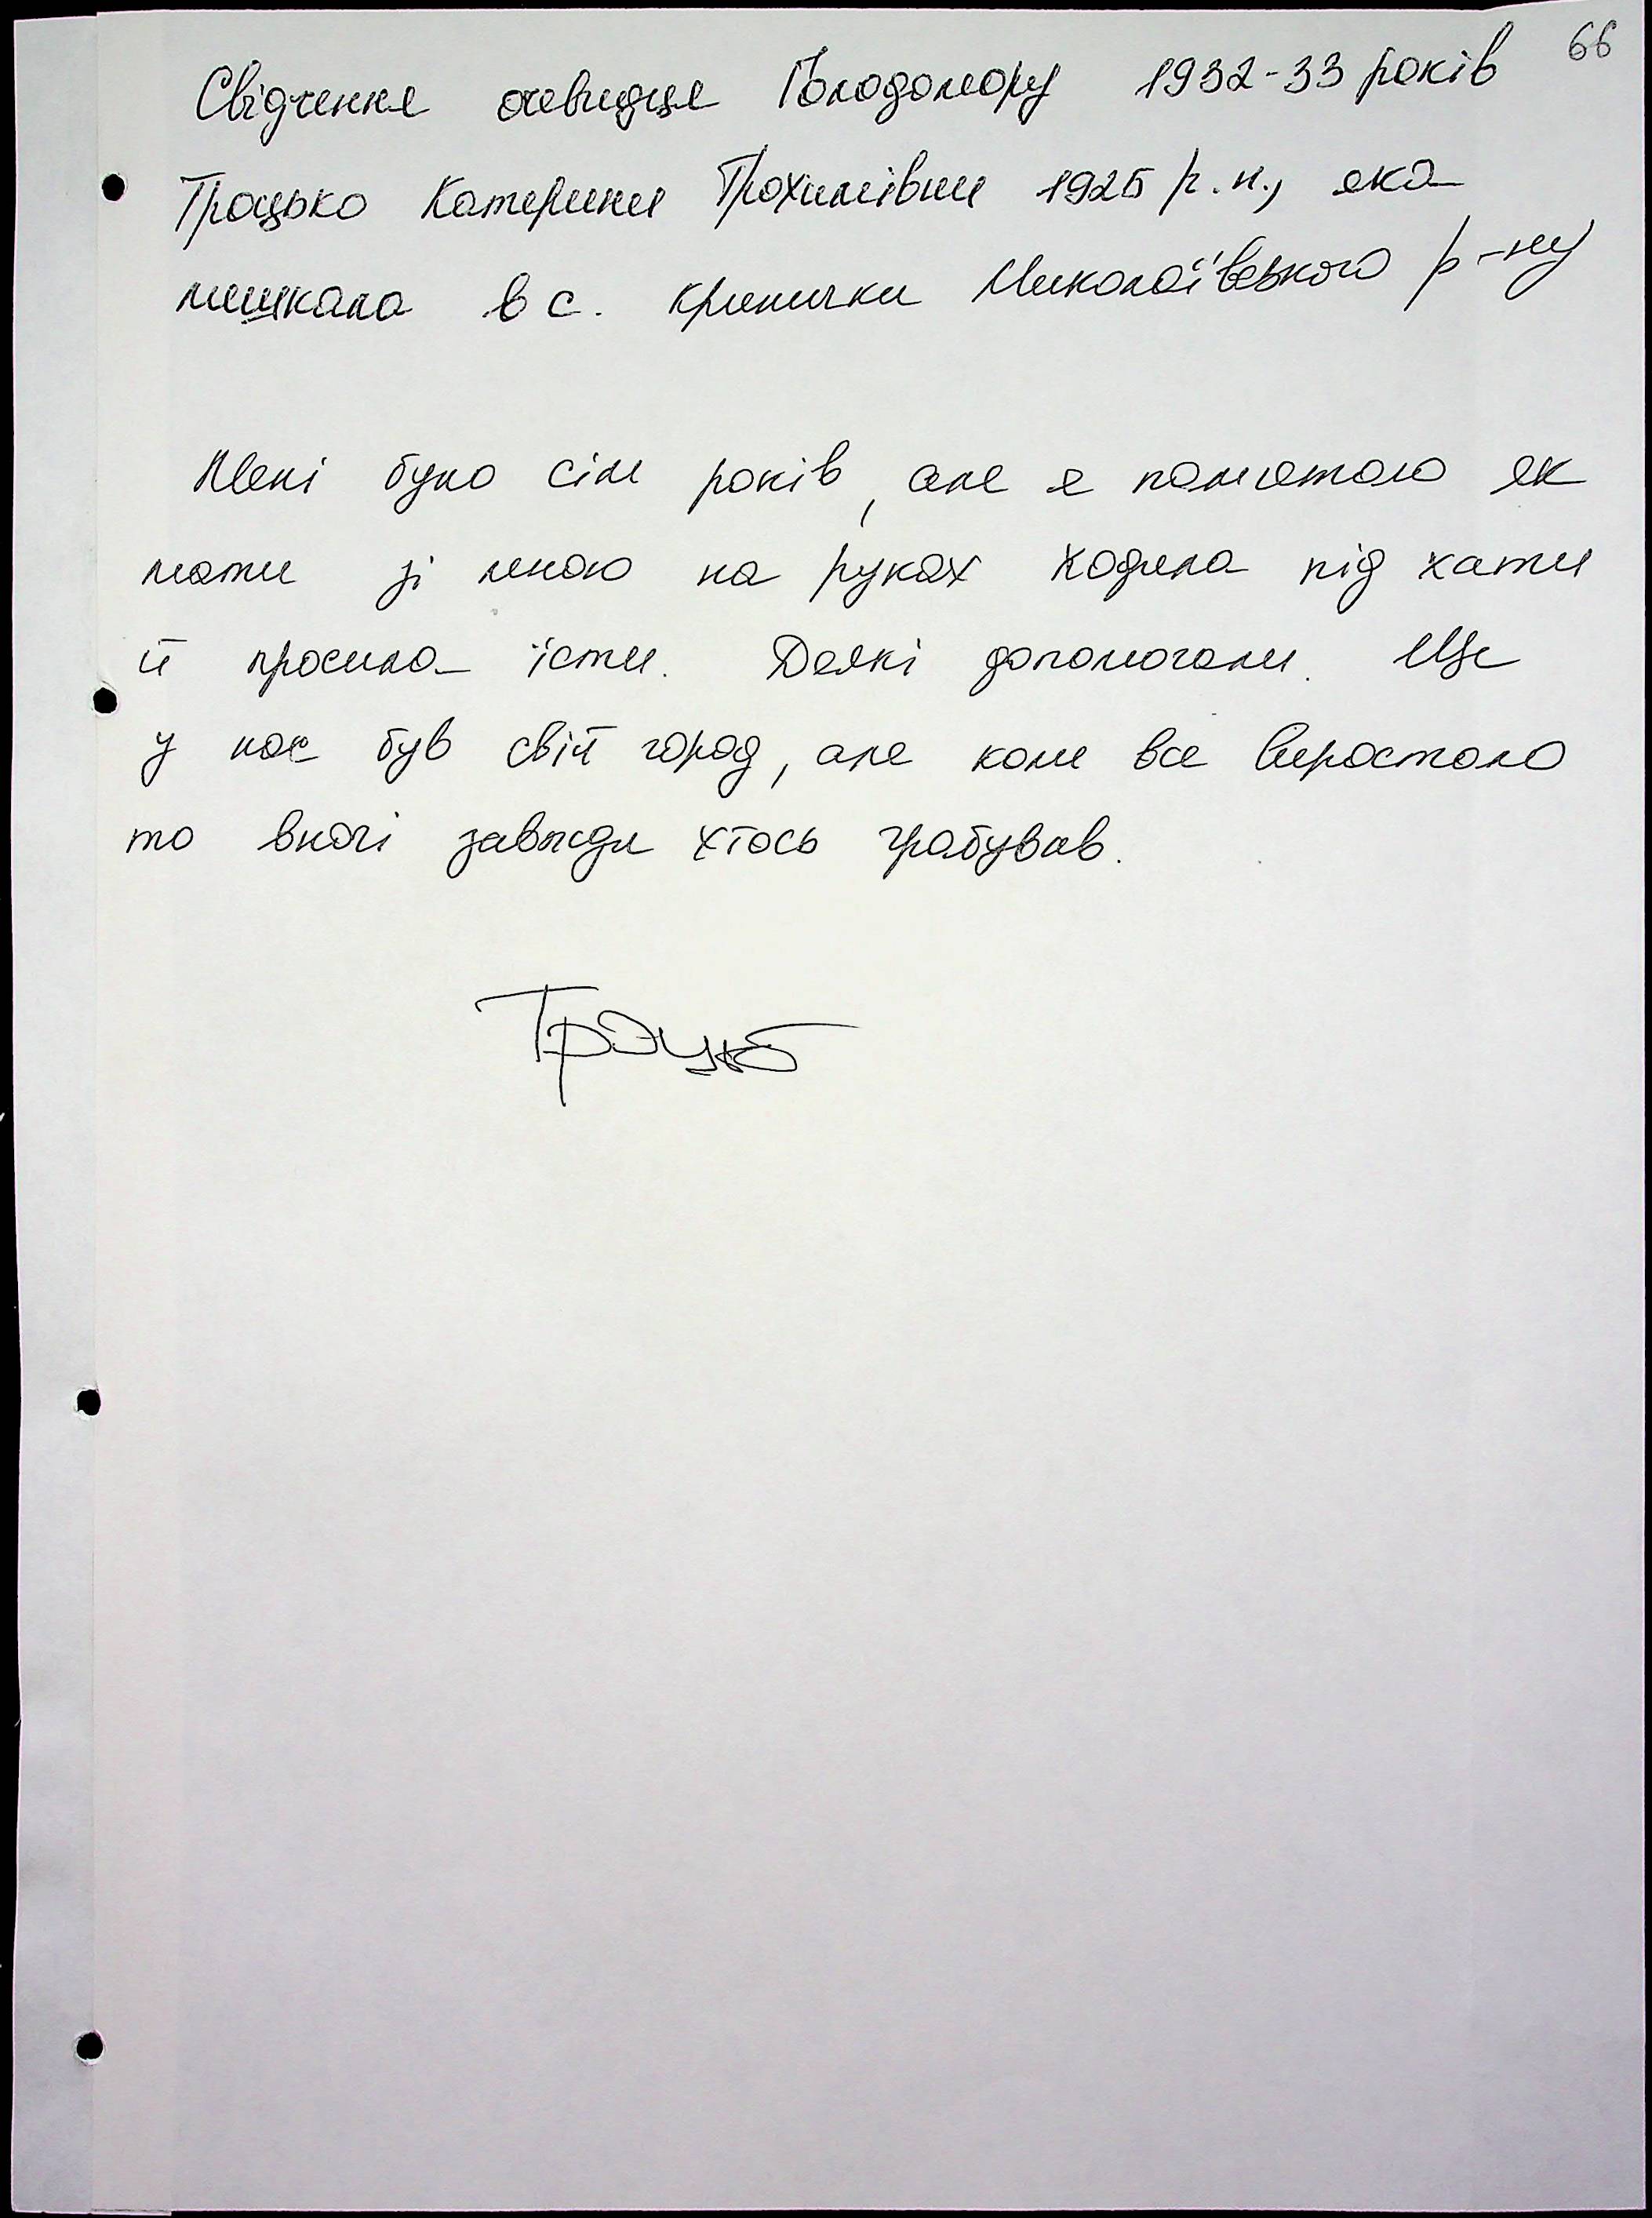 66
Свідчення очевидця Голодомору 1932-33 років
Троцько Катерини Трохимівни 1925 р.н., яка
мешкала в с. Кринички Миколаївського р-ну
Мені було сім років, але я памятаю як
мати зі мною на руках ходила під хати
й просила їсти. Деякі допомогали. Ще
у нас був свій город, але коли все виростало
то вночі завжди хтось грабував.